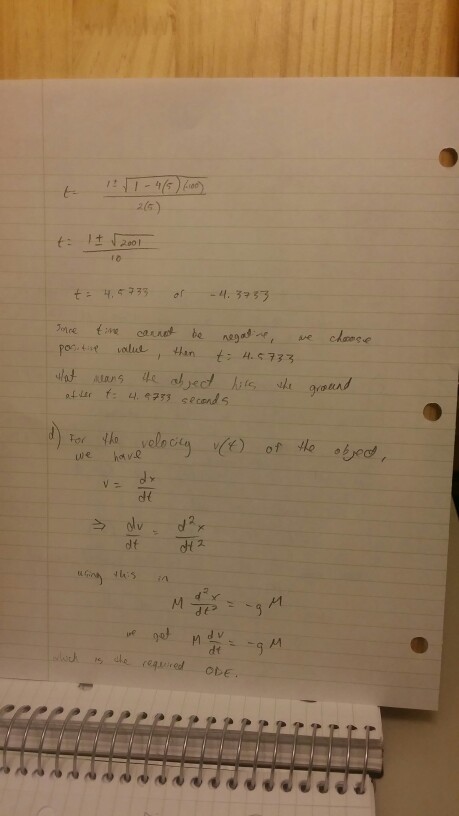 t = 1 ± √1 - 4(5)(-100) / 2(5)
t = 1 ± √2001 / 10
t = 4.5733 or -4.3733
Since time cannot be negative, we choose
positive value, then t = 4.5733
that means the object hits the ground
after t = 4.5733 seconds
d) For the velocity v(t) of the object,
we have
v = dx/dt
⇒ dv/dt = d²x/dt²
using this in
M d²x/dt² = -g M
we get M dv/dt = -g M
which is the required ODE.